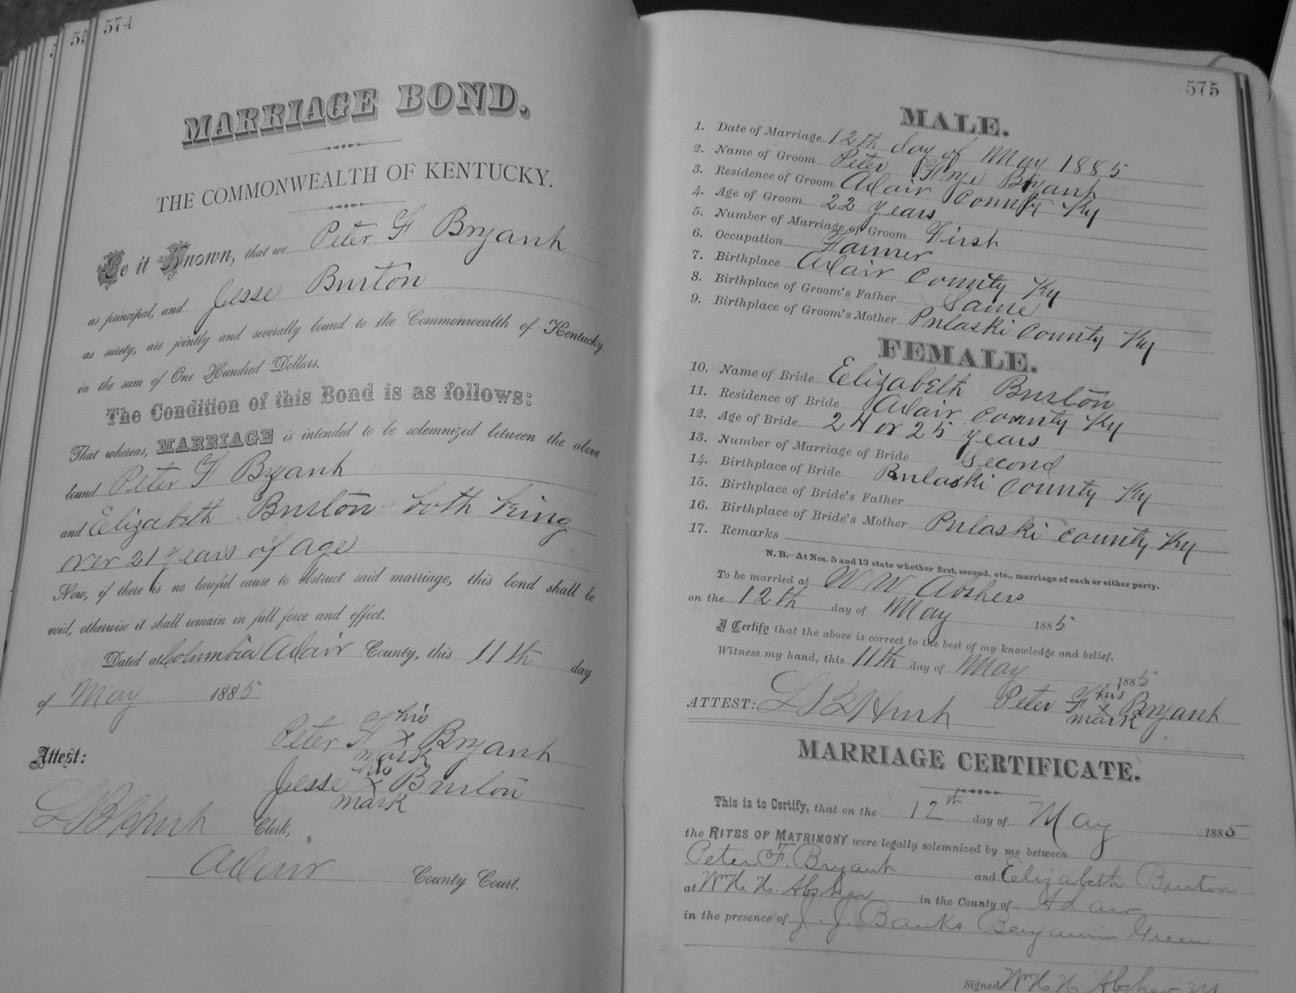 574
MARRIAGE BOND.
THE COMMONWEALTH OF KENTUCKY.
Be it Known, that we Peter F Bryant
as principal, and Jesse Burton
as surety, are jointly and severally bound to the Commonwealth of Kentucky
in the sum of One Hundred Dollars.
The Condition of this Bond is as follows:
That whereas, MARRIAGE is intended to be solemnized between the above
bound Peter F Bryant
and Elizabeth Burton both being
over 21 years of age
Now, if there is no lawful cause to obstruct said marriage, this bond shall be
void, otherwise it shall remain in full force and effect.
Dated at Columbia Adair County, this 11th day
of May 1885
Peter F his x mark Bryant
Attest:
Jesse his x mark Burton
Clerk,
Adair County Court.
575
MALE.
1. Date of Marriage 12th day of May 1885
2. Name of Groom Peter Bryant
3. Residence of Groom Adair County Ky
4. Age of Groom 22 years
5. Number of Marriage of Groom First
6. Occupation Farmer
7. Birthplace Adair County Ky
8. Birthplace of Groom's Father Same
9. Birthplace of Groom's Mother Pulaski County Ky
FEMALE.
10. Name of Bride Elizabeth Burton
11. Residence of Bride Adair County Ky
12. Age of Bride 24 or 25 years
13. Number of Marriage of Bride Second
14. Birthplace of Bride Pulaski County Ky
15. Birthplace of Bride's Father
16. Birthplace of Bride's Mother Pulaski County Ky
17. Remarks
N. B.—At Nos. 5 and 13 state whether first, second, etc., marriage of each or either party.
To be married at W W Abshers
on the 12th day of May 1885
I Certify that the above is correct to the best of my knowledge and belief.
Witness my hand, this 11th day of May 1885
ATTEST: Peter F his x mark Bryant
MARRIAGE CERTIFICATE.
This is to Certify, that on the 12th day of May 1885
the RITES OF MATRIMONY were legally solemnized by me between
Peter F. Bryant and Elizabeth Burton
at Wm H. H. Absher in the County of Adair
in the presence of J. J. Banks Benjamin Green
Signed Wm H H Absher